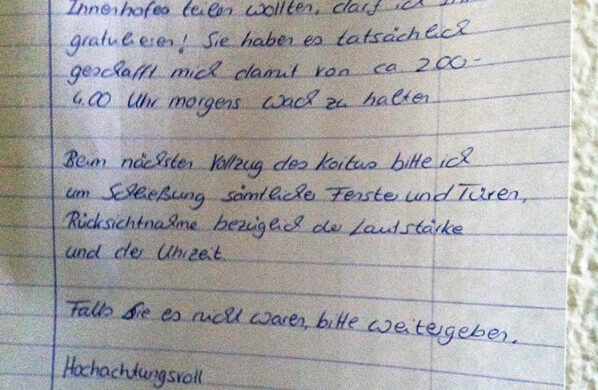 Innenhofes teilen wollten, darf ich
gratulieren! Sie haben es tatsächlich
geschafft mich damit von ca 2.00-
4.00 Uhr morgens wach zu halten
Beim nächsten Vollzug des Koitus bitte ich
um Schließung sämtliche Fenste und Türen,
Rücksichtnahme bezüglich de Lautstärke
und der Uhrzeit.
Falls Sie es nicht waren, bitte weitergeben.
Hochachtungsvoll